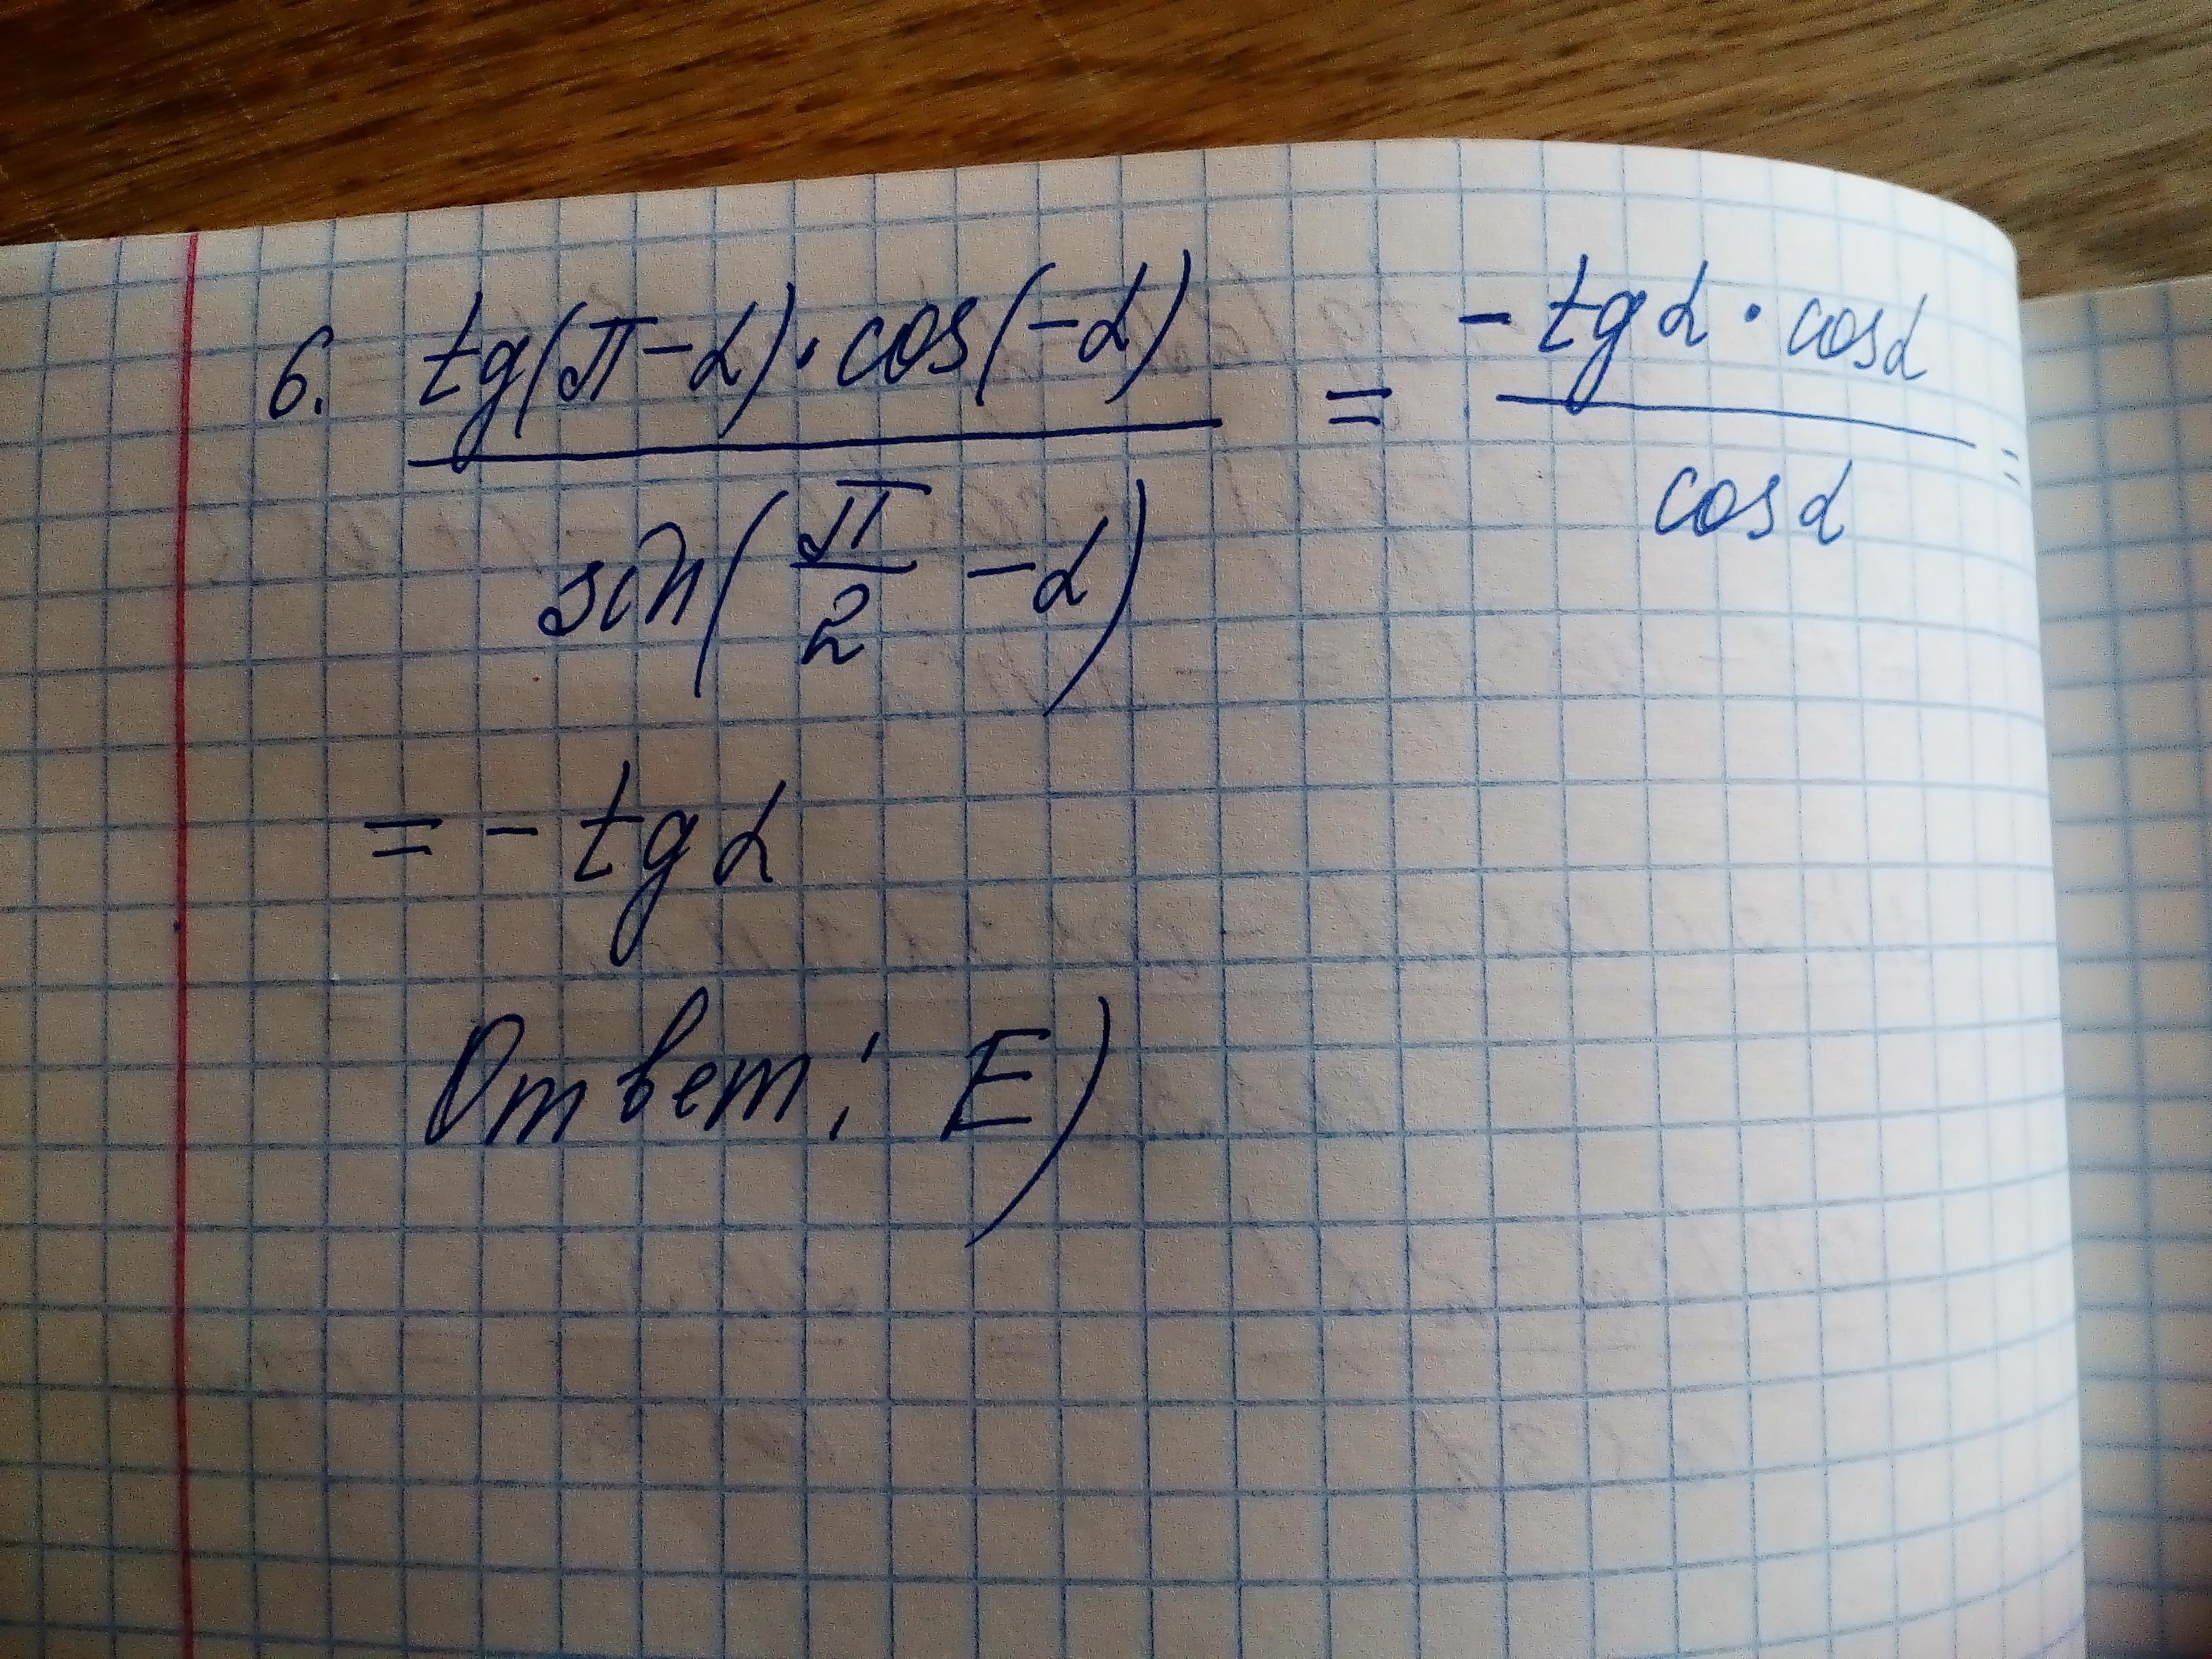 6. tg(π-α)·cos(-α) / sin(π/2 -α) = -tgα·cosα / cosα =
= - tgα
Ответ: E)